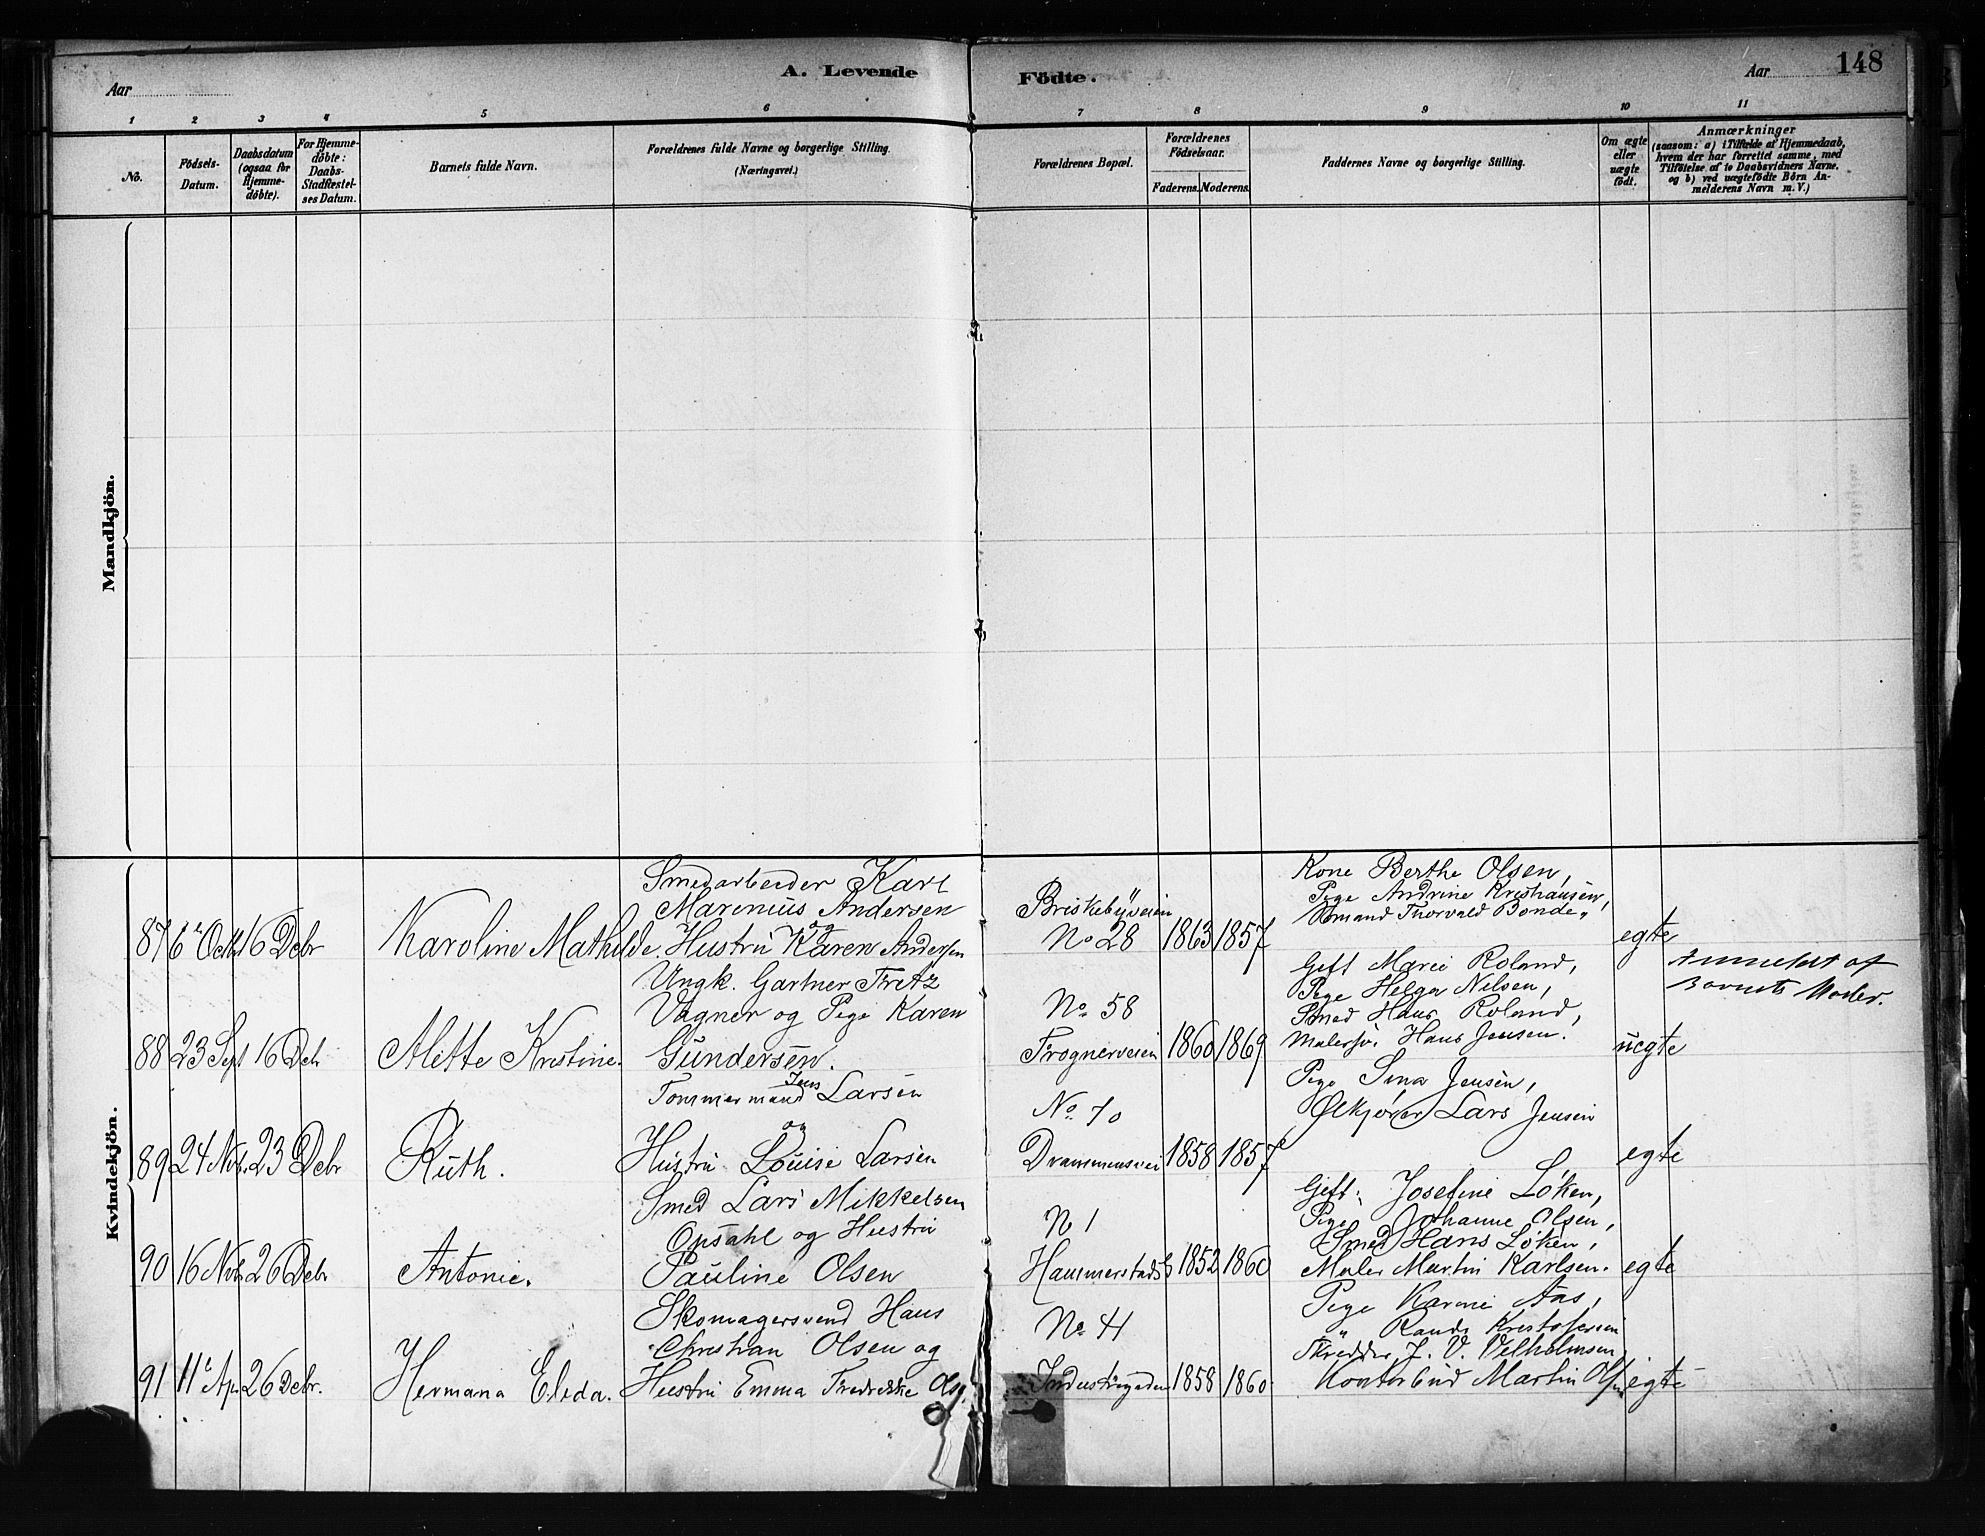 148
Aar
A. Levende Födte.
Aar
1 2 3 4 5 6 7 8 9 10 11
No.
Födsels-
Datum.
Daabsdatum
(ogsaa for
Hjemme-
döbte).
For Hjemme-
döbte:
Daabs-
Stadfæstel-
ses Datum.
Barnets fulde Navn.
Forældrenes fulde Navne og borgerlige Stilling.
(Næringsvei.)
Forældrenes Bopæl.
Forældrenes
Födselsaar.
Faderens.
Moderens.
Faddernes Navne og borgerlige Stilling.
Om ægte
eller
uægte
født.
Anmærkninger
(saasom: a) i Tilfælde af Hjemmedaab,
hvem der har forrettet samme, med
Tilföielse af to Daabsvidners Navne,
og b) ved uægtefödte Börn An-
melderens Navn m.V.)
Mandkjön.
Kvindekjön.
87 6 Octr 16 Debr
Karoline Mathilde.
Smedarbeider Karl
Marinius Andersen
og
Hustru Karen Andersen
Briskebyveien
No 28
1863 1857
Kone Berthe Olsen,
Pige Andrine Kristiansen,
Thorvald Bonde.
egte
88 23 Sept 16 Debr
Alette Kristine.
Ungk. Gartner Fritz
Vagner og Pige Karen
Gundersen.
No. 58
Frognerveien
1860 1869
Gift Marie Roland,
Pige Helga Nilsen,
Smed Hans Roland,
Hans Jensen.
uegte
Anmeldt af
Barnets Moder.
89 24 Nvb. 23 Debr
Ruth.
Tømmermand Jens Larsen
og
Hustru Louise Larsen
No. 70
Drammensvei
1858 1857
Pige Sina Jensen,
Ølkjører Lars Jensen
egte
90 16 Nvb. 26 Debr
Antonie.
Smed Lars Mikkelsen
Opsahl og Hustru
Pauline Olsen
N 1
Hammerstadsg
1852 1860
Gift. Josefine Løken,
Pige Johanne Olsen,
Smed Hans Løken,
Maler Martin Karlsen.
egte
91 11 Ap. 26 Debr.
Hermana Elida.
Skomagersvend Hans
Christian Olsen og
Hustru Emma Fredrikke Olsen
No. 41
Industrigaden
1858 1860
Pige Karine Aas,
Randi Kristofersen
Skrædder J. V. Velhelmsen,
Kontorbud Martin Olsen
egte